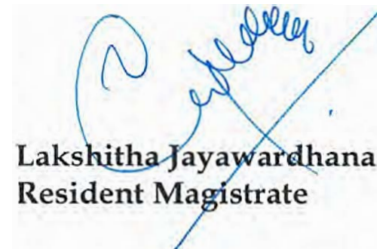 Lakshitha Jayawardhana
Resident Magistrate